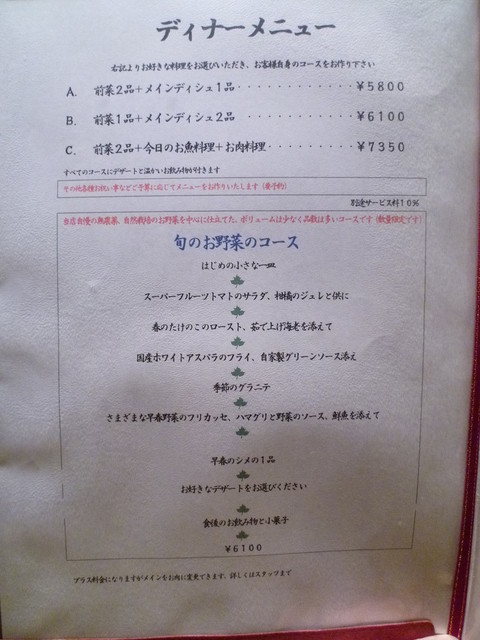 ディナーメニュー
右記よりお好きな料理をお選びいただき、お客様自身のコースをお作り下さい
A. 前菜2品+メインディシュ1品・・・・・・・・・・・¥5800
B. 前菜1品+メインディシュ2品・・・・・・・・・・・¥6100
C. 前菜2品+今日のお魚料理+お肉料理・・・・・・・・¥7350
すべてのコースにデザートと温かいお飲み物が付きます
その他各種お祝い事などご予算に応じてメニューをお作りいたします（要予約）
別途サービス料10%
当店自慢の無農薬、自然栽培のお野菜を中心に仕立てた、ボリュームは少なく品数は多いコースです（数量限定です）
旬のお野菜のコース
はじめの小さな一皿
スーパーフルーツトマトのサラダ、柑橘のジュレと供に
春のたけのこのロースト、茹で上げ海老を添えて
国産ホワイトアスパラのフライ、自家製グリーンソース添え
季節のグラニテ
さまざまな早春野菜のフリカッセ、ハマグリと野菜のソース、鮮魚を添えて
早春のシメの1品
お好きなデザートをお選びください
食後のお飲み物と小菓子
¥6100
プラス料金になりますがメインをお肉に変更できます。詳しくはスタッフまで